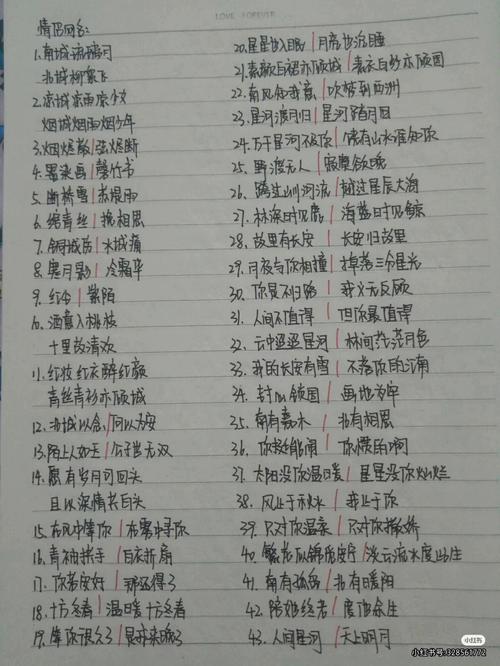 LOVE FOREVER
情侣网名:
1.南城流璃月
北城柳絮飞
2.凉城凉雨凉少女
烟城烟雨烟少年
3.烟煜散|弦煜断
4.墨染画|馨竹书
5.断桥雪|苏堤雨
6.绾青丝|挽相思
7.铜城伤|水城痛
8.寒月影|冷霜华
9.红兮|紫陌
10.酒意入桃枝
十里故清欢
11.红妆红衣醉红颜
青丝青衫亦倾城
12.北城以念|何以为安
13.陌上人如玉|公子世无双
14.愿有岁月可回头
且以深情共白头
15.在风中等你|在雾中寻你
16.青袖执手|白衣折扇
17.你若安好|那还得了
18.十方冬春|温暖十方冬春
19.等你很久了|是我来晚了
20.星星也入眠|月亮也沉睡
21.素颜白裙亦倾城|素衣白纱亦倾国
22.南风知我意|吹梦到西洲
23.星河渡月归|星河踏月回
24.万千星河不及你|情有山水谁知你
25.野渡无人|寂寞饮晚
26.跨过山河流|越过星辰大海
27.林深时见鹿|海蓝时见鲸
28.故里有长安|长安归故里
29.月夜与你相撞|掉落三分星光
30.你是不归路|我义无反顾
31.人间不值得|但你最值得
32.云中亟亟星河|林间茫茫月色
33.我的长安有雪|不落你的江南
34.封心锁国|画地为牢
35.南有嘉木|北有相思
36.你好能闹|你惯的啊
37.太阳没你温暖|星星没你灿烂
38.风止于秋水|我止于你
39.只对你温柔|只对你撒娇
40.繁花似锦觅安宁|淡云流水度此生
41.南有孤岛|北有暖阳
42.陪她终老|度他余生
43.人间星河|天上明月
小红书
小红书号:328561772